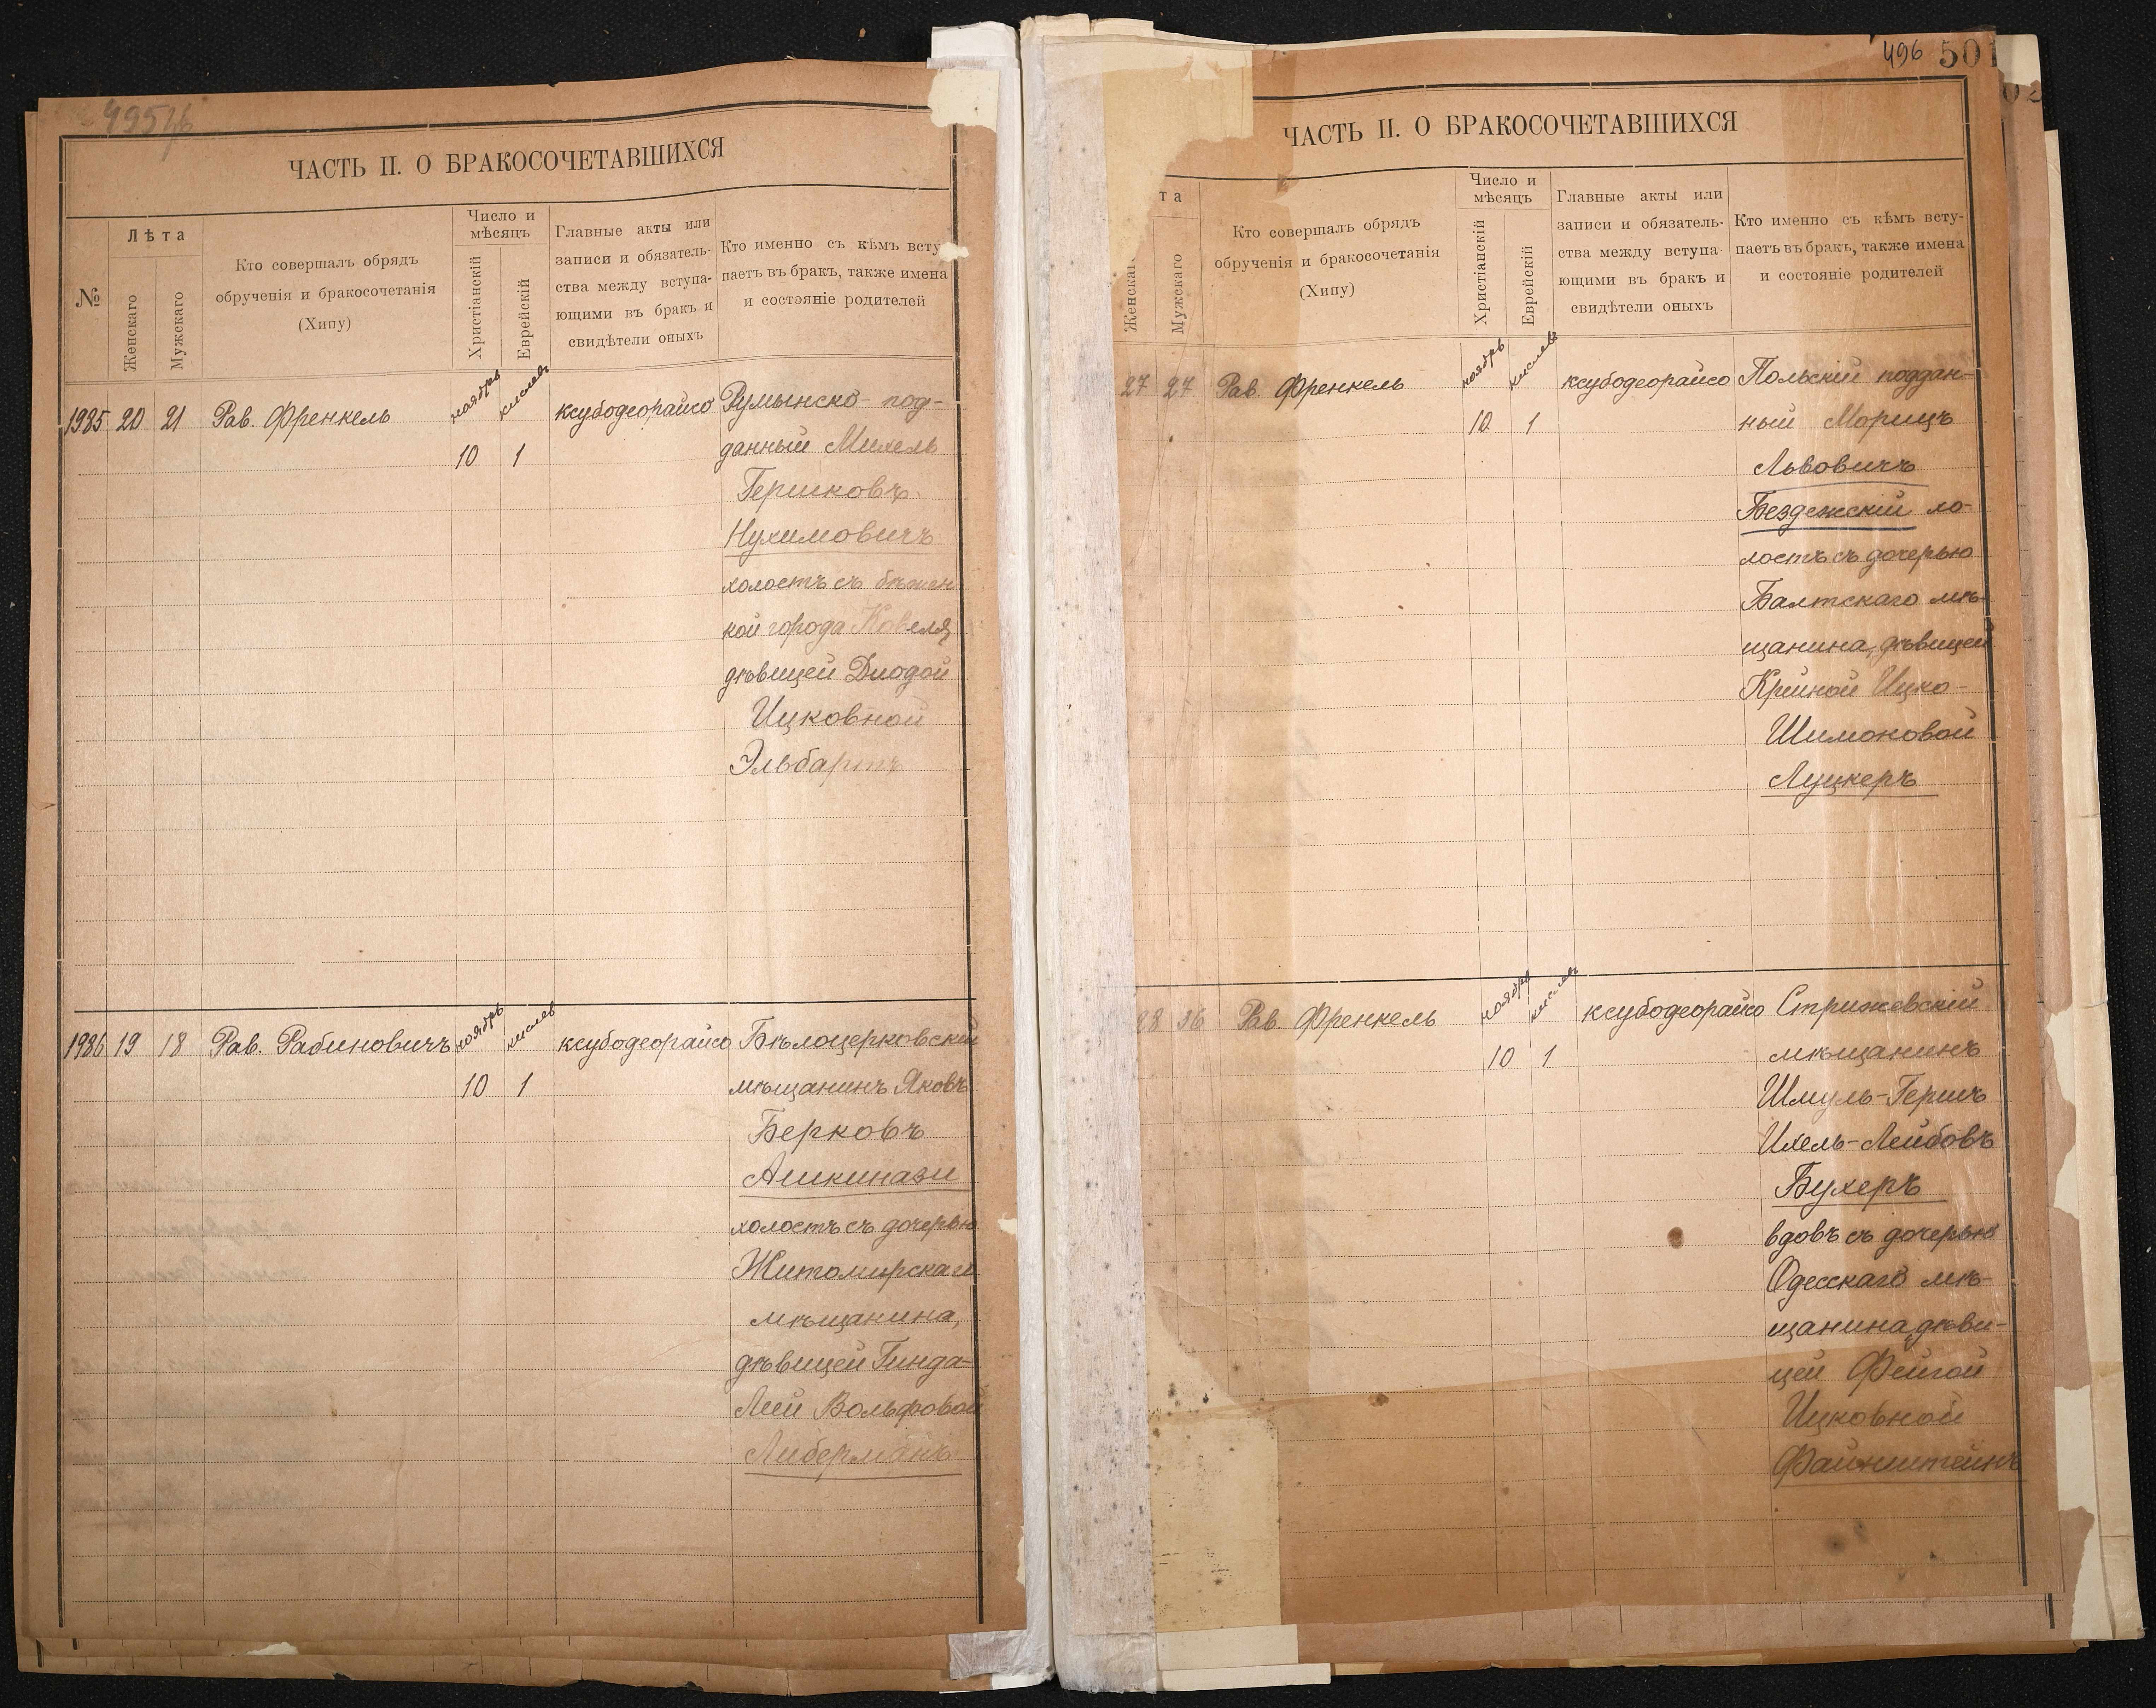 ЧАСТЬ II. О БРАКОСОЧЕТАВШИХСЯ
№
Лѣта
Женскаго
Мужскаго
Кто совершалъ обрядъ
обрученія и бракосочетанія
(Хипу)
Число и
мѣсяцъ
Христіанскій
Еврейскій
Главные акты или
записи и обязатель-
ства между вступа-
ющими въ бракъ и
свидѣтели оныхъ
Кто именно съ кѣмъ всту
паетъ въ бракъ, также имена
и состояніе родителей
1985 20 21 Рав. Френкель ноябрь кислевъ ксубодеорайсо Румынско-под-
10 1 данный Михель
Гершковъ
Нухимовичъ
холостъ съ бѣжен
кой города Ковеля,
дѣвицей Двойрой
Ицковной
1986 19 18 Рав. Рабиновичъ ноябрь кислев ксубодеорайсо Бѣлоцерковскій
10 1 мѣщанинъ Яковъ
Берковъ
Ашкинази
холостъ съ дочерью
Житомирскаго
мѣщанина,
дѣвицей Гинда-
Леей Вольфовой
Либерманъ
496 501
ЧАСТЬ II. О БРАКОСОЧЕТАВШИХСЯ
та
Женскаг
Мужскаго
Кто совершалъ обрядъ
обрученія и бракосочетанія
(Хипу)
Число и
мѣсяцъ
Христіанскій
Еврейскій
Главные акты или
записи и обязатель-
ства между вступа-
ющими въ бракъ и
свидѣтели оныхъ
Кто именно съ кѣмъ всту-
паетъ въ бракъ, также имена
и состояніе родителей
27 27 Рав. Френкель ноябрь кислевъ ксубодеорайсо Польскій поддан-
10 1 ный Морицъ
Львовичъ
Бездежскій хо-
лостъ съ дочерью
Балтскаго мѣ-
щанина, дѣвицей
Крейной Ицко-
Шимоновой
Луцкеръ
28 36 Рав. Френкель ноябрь кислев ксубодеорайсо Стрижевскій
10 1 мѣщанинъ
Шмуль-Гершъ
Ихель-Лейбовъ
Бухеръ
вдовъ съ дочерью
Одесскаго мѣ-
щанина, дѣви-
цей Фейгой
Ицковной
Файнштейнъ